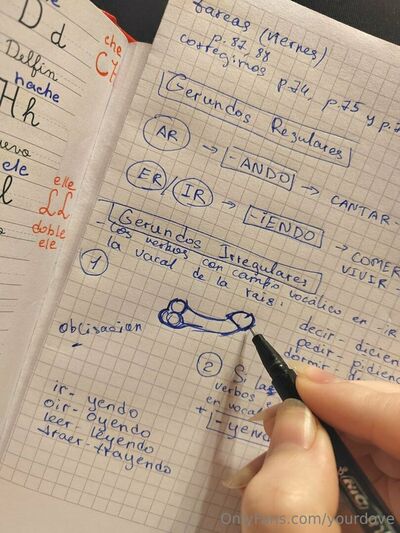 D d
che
Delfín
hache
H h
elle
LL
doble
ele
tareas (viernes)
p. 87, 88
corregimos p.74, p.75 y p.7
Gerundos Regulares
AR → -ANDO → CANTAR
ER / IR → -iENDO → COMER
VIVIR -
Gerundos Irregulares
1 Los verbos con campo vocálico en -IR
la vocal de la rais:
decir - diciend
pedir - pidiend
dormir -
2 Si la
verbos
en vocal
+ -yend
ir - yendo
oir - oyendo
leer - leyendo
traer - trayendo
OnlyFans.com/yourdove